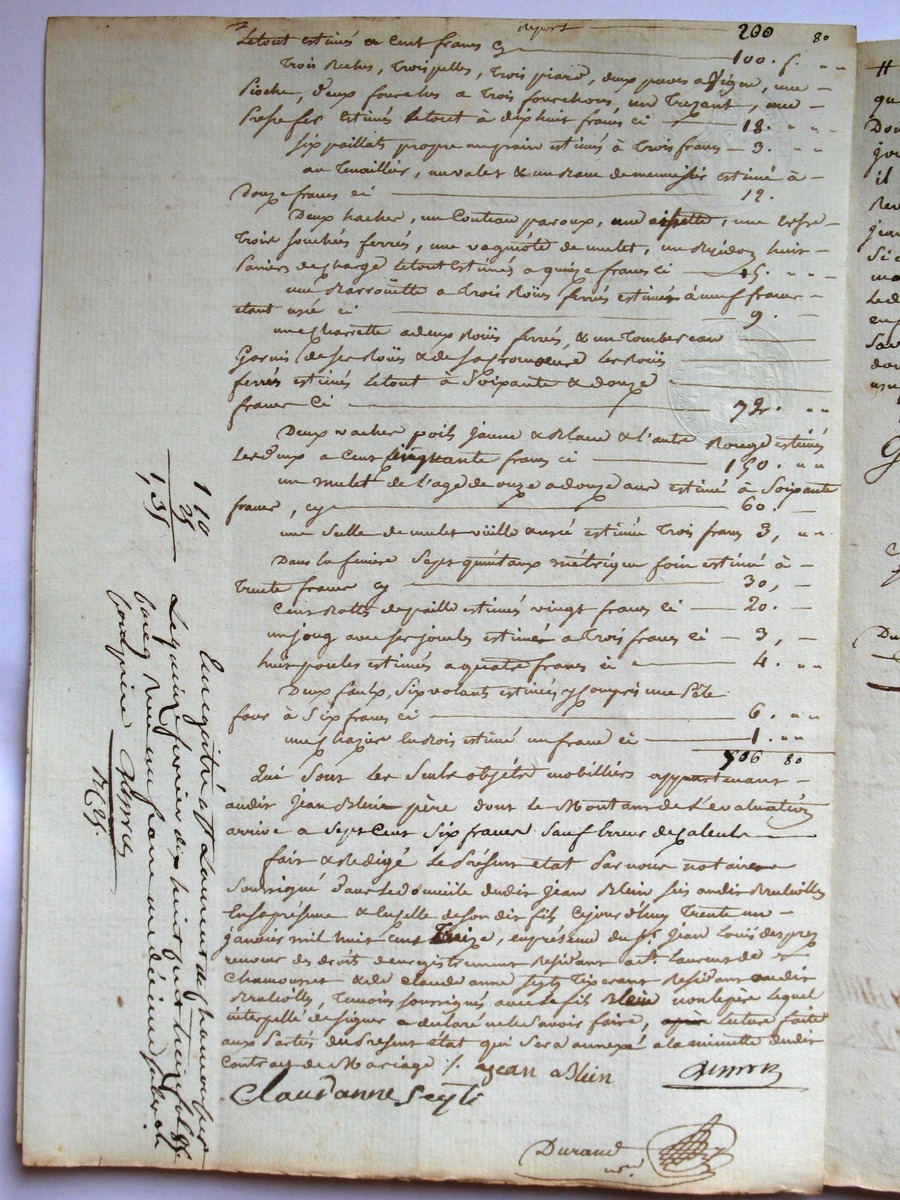 report 200 80
Letout estimés a Cent francs cy 100. f. " "
Trois Beches, Trois pelles, Trois piard, deux paves a vigne, une
Pioche, Deux fourches a Trois fourchons, un Trezant, une
Prese fer Estimés Letout à dix huit francs ci 18. " "
Six paillats propre au prain estimés à Trois francs 3. " "
une Tenaillier, un valet & un Banc de menuisier estimé à
Douze francs ci 12.
Deux haches, un Couteau paroux, une aissette, une
Trois ferrés, une de mulet, un huit
Paniers de charge Letout Estimés a quinze francs ci 15. " "
une Barrouette a Trois Roües ferrés estimés à neuf francs
etant usée ci 9.
une Charrette a deux Roües ferrés, & un Tombereau
Garnis de ses Roües & de sa les Roües
ferrés estimés Letout à Soixante & douze
francs Ci 72. " "
Deux vaches poils Jaune & Blanc & l'autre Rouge estimés
Les deux a Cent Cinquante francs ci 150. " "
un mulet de l'age de onze a douze ans estimé à Soixante
francs, cy 60.
une Selle de mulet vieille & usée estimée Trois francs 3, " "
Dans la feniere Sept quintaux métrique foin estimé à
Trente francs cy 30,
Cent Bottes de paille estimés vingt francs ci 20.
un joug avec ses estimés a Trois francs ci 3,
huit poules estimés a quatre francs ci 4. " "
Deux faulx, Six volants estimés y Compris une
faux à Six francs ci 6. " "
une en Bois estimé un franc ci 1. " "
706 80
Qui sont les Seuls objets mobilliers appartenant
audit Jean Blein père dont le Montant de L'evaluation
arrive a Sept Cent Six francs Sauf Erreur de Calculs
fait & Redigé Le Présent etat Par nous notaire
Soussigné dans Le domicile dudit Jean Blein Sis audit
En sa présence & en celle de son dit fils Cejourd'huy Trente un
janvier mil huit cent Treize, en présence du Sr. Jean Louis despres
receveur des droits d'enregistrement Residant a St. Laurent de
Chamousset & de Claude anne Seyti Tixerant Residant audit
Temoins Soussignés avec le fils Blein non le père lequel
interpellé de Signer a declaré ne le Savoir faire, après Lecture faite
aux Parties du Présent etat qui Sera annexé a la minutte dudit
Contract de Mariage ./. jean Blein
Claud anne Seyti
Durand
nre.
1 10
25
1,35
Enregistré a St Laurent de Chamousset
Le quinze fevrier dix huit cent treize fol. 85
Reçu un franc un décime